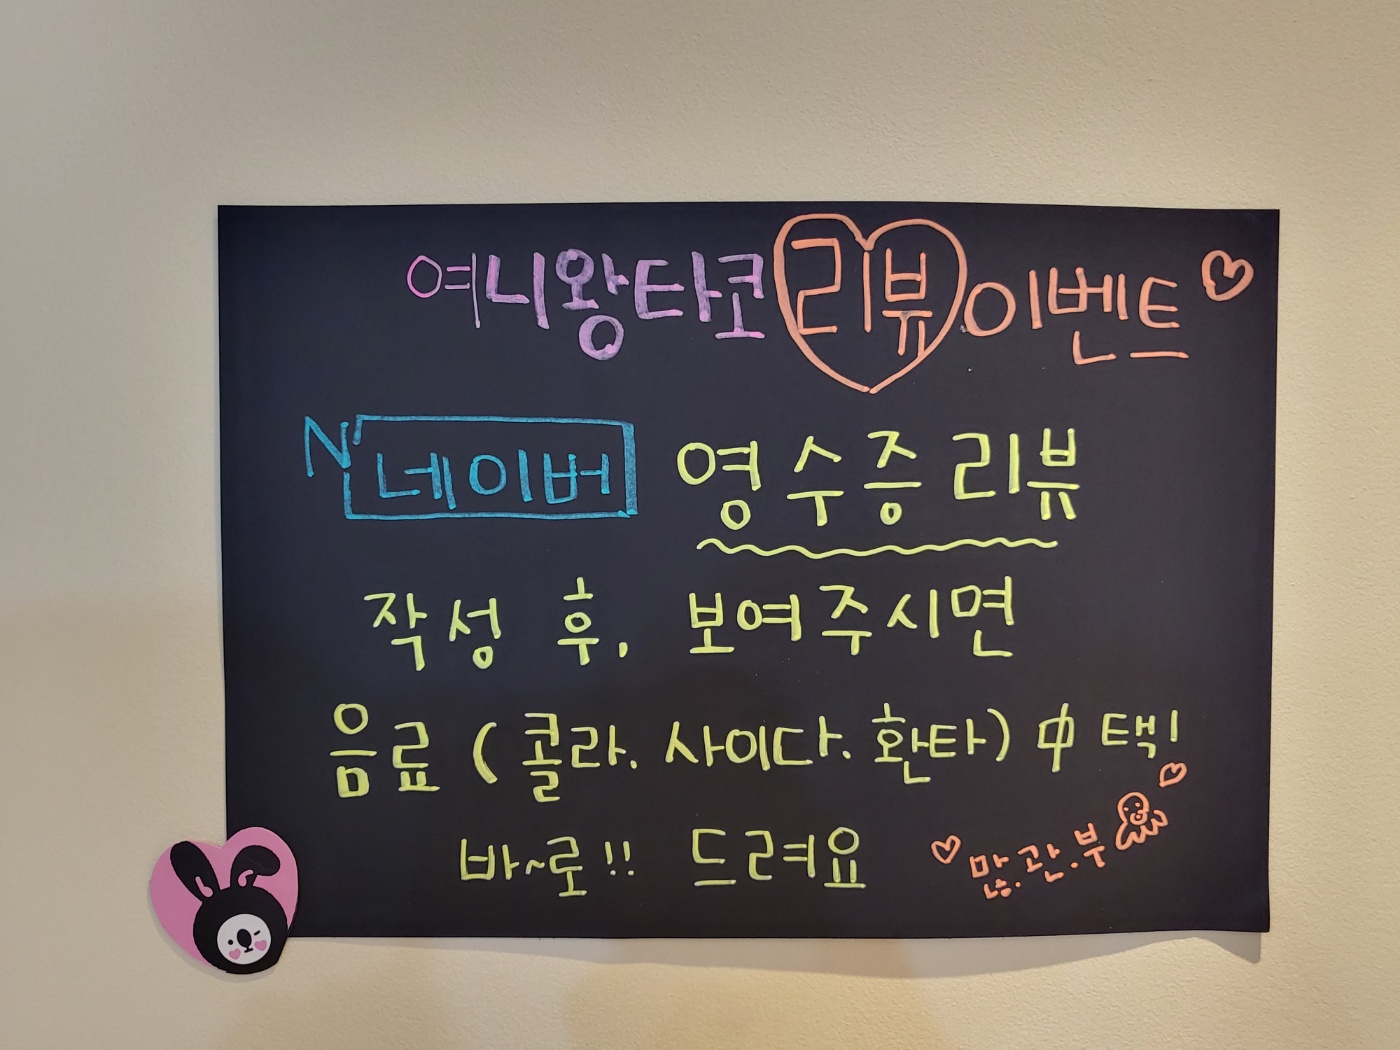 여니왕타코 리뷰 이벤트
N 네이버 영수증 리뷰
작성 후, 보여주시면
음료 (콜라. 사이다. 환타) 中 택1
바~로!! 드려요
많.관.부